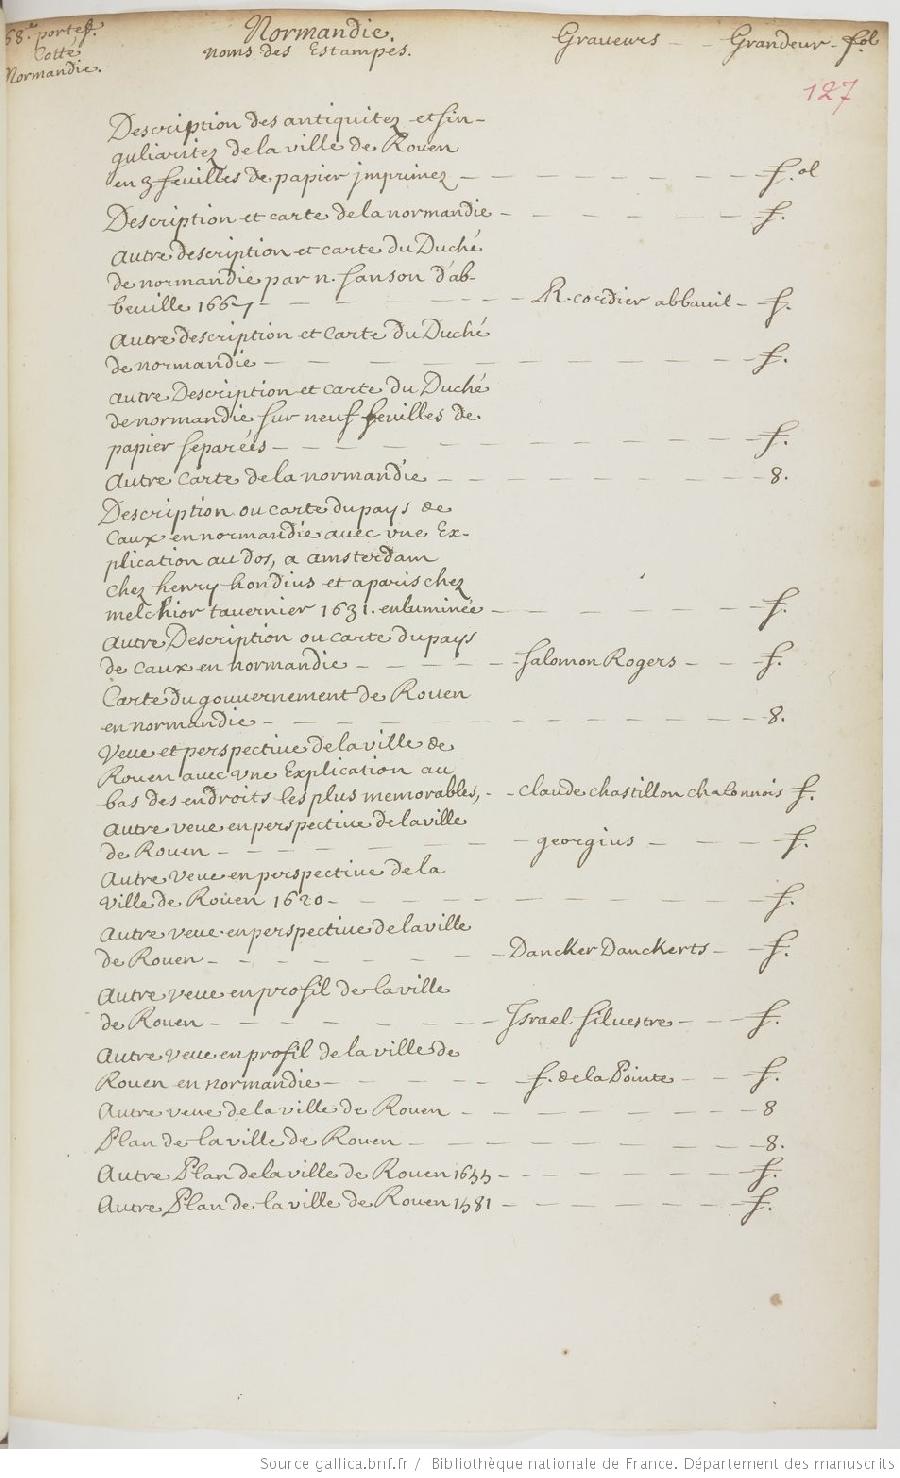 58.e portef.
Cotté
Normandie.
Normandie.
Noms des Estampes.
Graveurs - - Grandeur - fol
127
Description des antiquitez et sin-
gularitez de la ville de Rouen
en 3 feuilles de papier jmprimez - f.ol
Description et carte de la normandie - f.
autre description et carte du Duché
de normandie par n. sanson d'ab-
beuille 1667 - R. cordier abbauil - f.
autre description et carte du Duché
de normandie - f.
autre Description et carte du Duché
de normandie sur neuf feuilles de
papier separées - f.
Autre carte de la normandie - 8.
Description ou carte du pays de
Caux en normandie avec vne Ex-
plication au dos, a amsterdam
chez henry hondius et a paris chez
melchior tavernier 1631. enluminée - f.
autre Description ou carte du pays
de caux en normandie - Salomon Rogers - f.
Carte du gouuernement de Rouen
en normandie - 8.
Veue et perspectiue de la ville de
Rouen auec vne Explication au
bas des endroits les plus memorables, - claude chastillon chalonnois f.
autre veue en perspectiue de la ville
de Rouen - georgius - f.
Autre veue en perspectiue de la
ville de Roüen 1620 - f.
autre veue en perspectiue de la ville
de Rouen - Dancker Danckerts - f.
Autre veue en profil de la ville
de Rouen - Israel silvestre - f.
Autre veue en profil de la ville de
Rouen en normandie - f. de la Pointe - f.
Autre veue de la ville de Rouen - 8
Plan de la ville de Rouen - 8.
Autre Plan de la ville de Rouen 1655 - f.
Autre Plan de la ville de Rouen 1581 - f.
Source gallica.bnf.fr / Bibliothèque nationale de France. Département des manuscrits